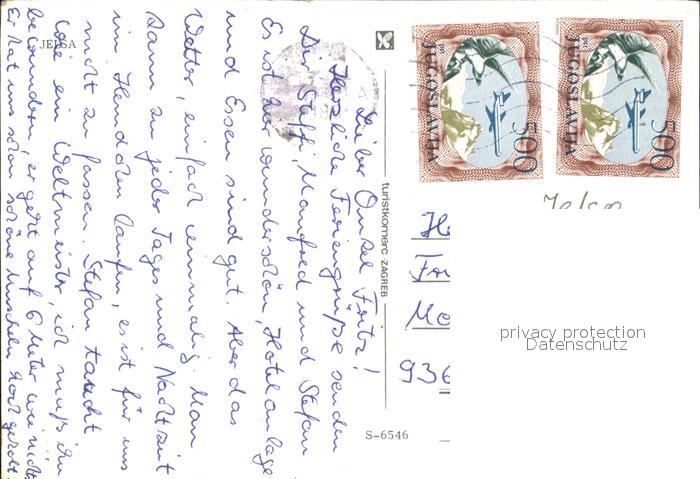 JELSA
Lieber Onkel Fritz!
Herzliche Feriengrüße senden
Dir Steffi, Manfred und Stefan
Es ist hier wunderschön, Hotelanlage
und Essen sind gut. Aber das
Wetter, einfach einmalig. Man
kann zu jeder Tages und Nachtzeit
im Hemdchen laufen, es ist für uns
nicht zu fassen. Stefan taucht
wie ein Weltmeister, ich muß ihn
bewundern, er geht auf 6 Meter wie nichts
Er hat uns schon schöne Muscheln hoch geholt.
turistkomerc ZAGREB
S-6546
JUGOSLAVIJA
500
JUGOSLAVIJA
500
Jelsa
He
Fr
Me
936
privacy protection
Datenschutz